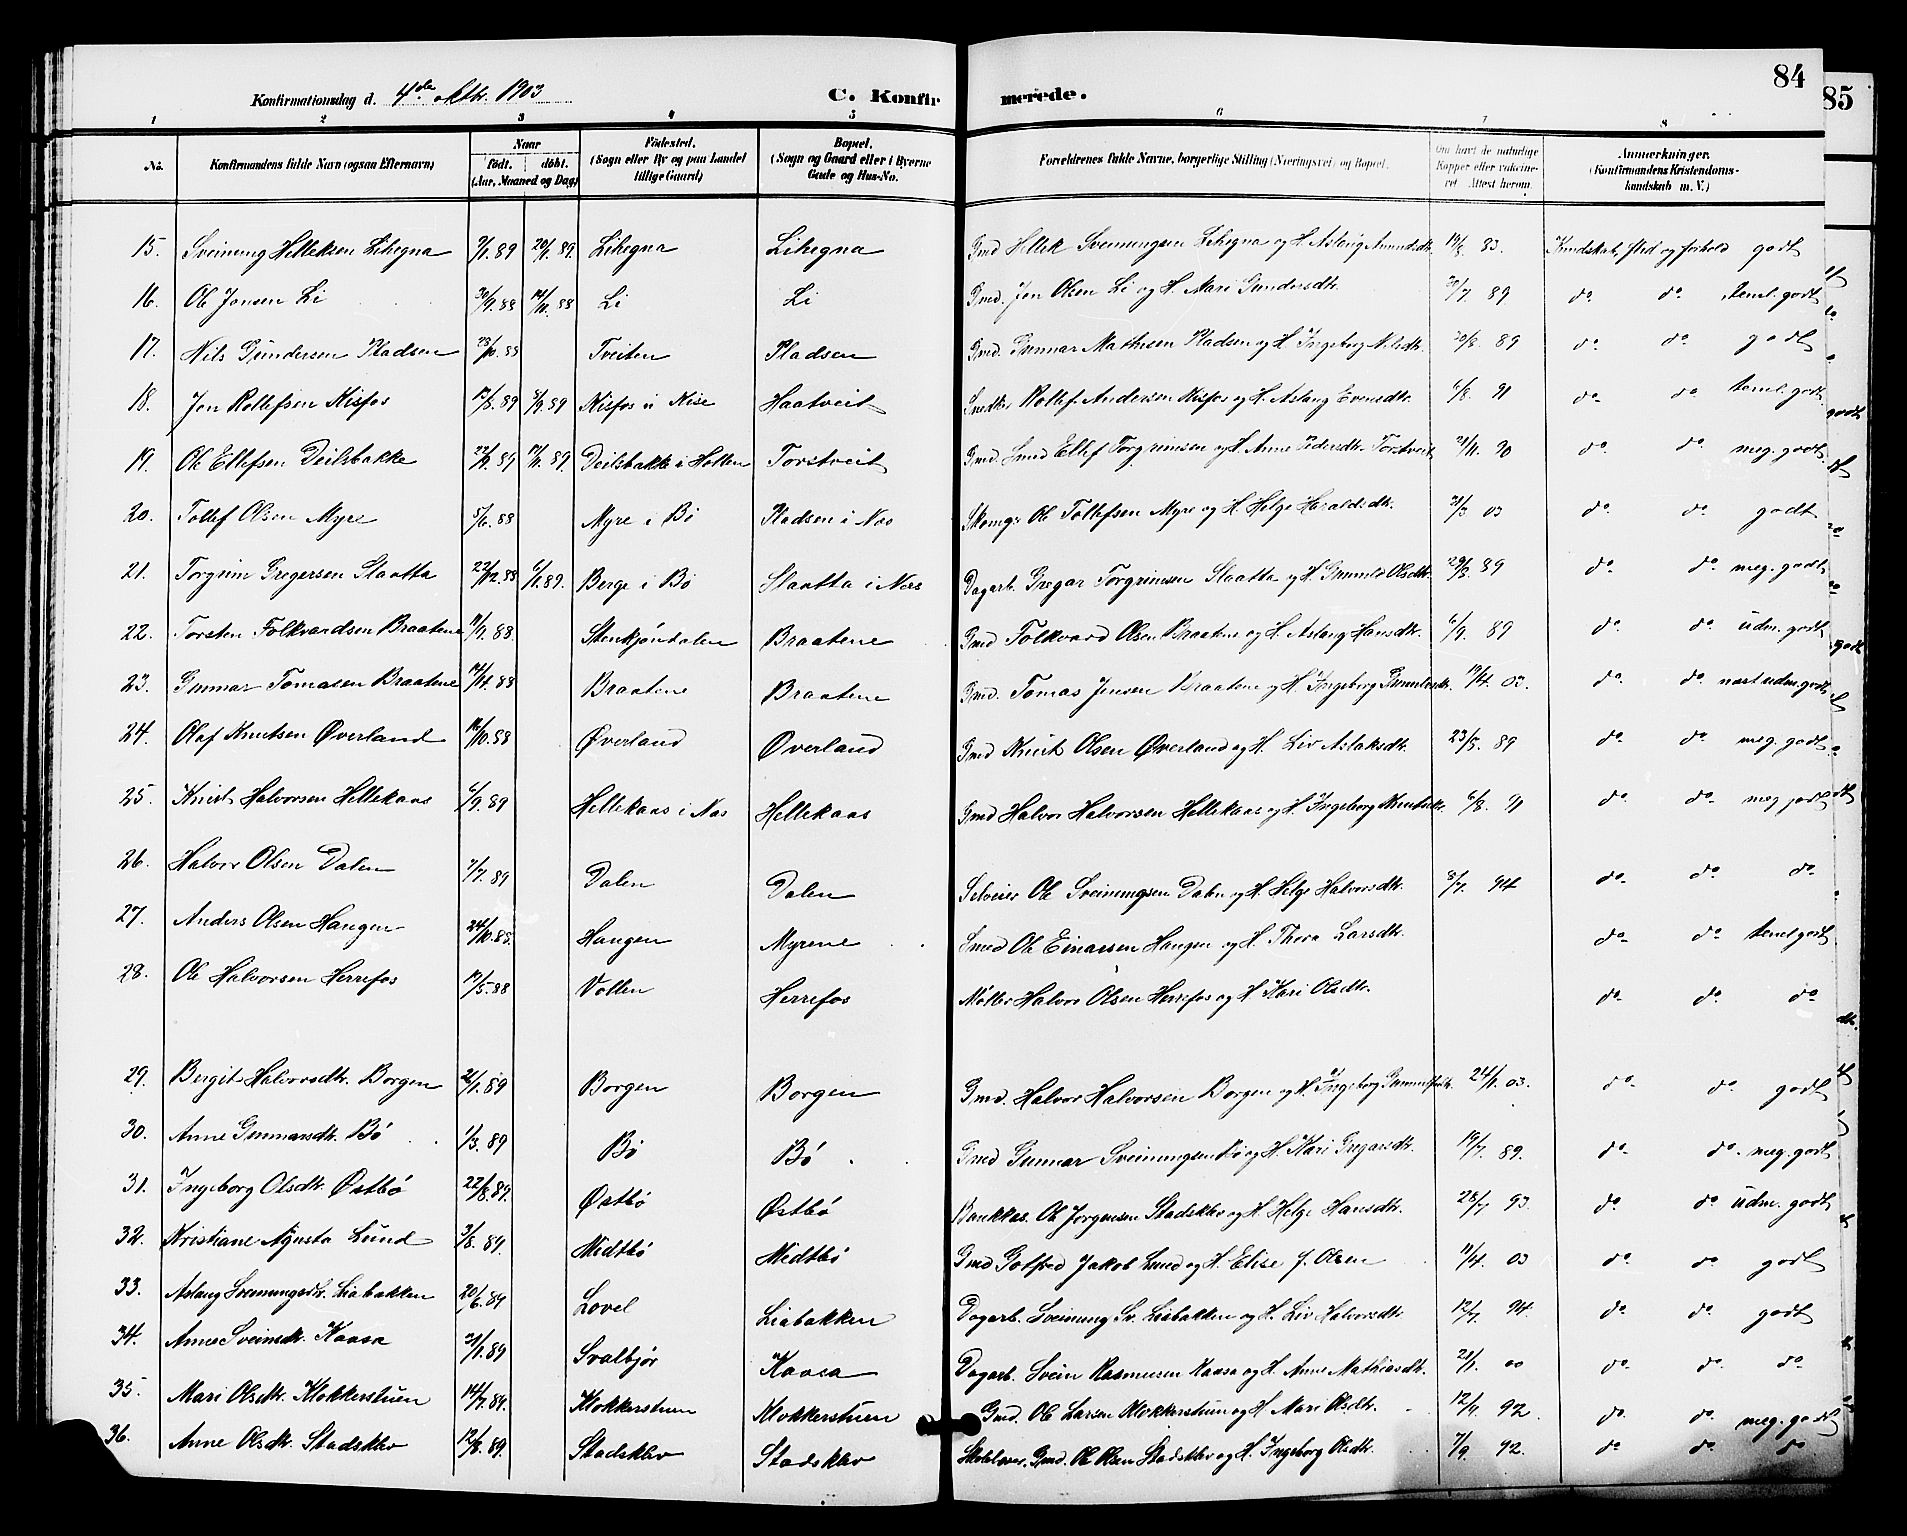 84
85
Konfirmationsdag d. 4de oktbr. 1903 C. Konfirmerede.
1 2 3 4 5 6 7 8
No. Konfirmandens fulde Navn (ogsaa Efternavn) Naar født. døbt. (Aar, Maaned og Dag) Fødested. (Sogn eller By og paa Landet tillige Gaard) Bopæl. (Sogn og Gaard eller i Byerne Gade og Hus-No. Forældrenes fulde Navne, borgerlige Stilling (Næringsvei) og Bopæl. Om havt de naturlige Kopper eller vaccineret. Attest herom. Anmerkninger. (Konfirmandens Kristendomskundskab m. V.)
15. Sveinung Helleksen Lihegna 9/1.89 20/1.89. Lihegna Lihegna Gmd Hellek Sveinungsen Lihegna og H. Aslaug Amundsdtr. 83. Kundskab, flid og forhold godt
16. Ole Jonsen Li 30/9.88 14/10.88 Li Li Gmd. Jon Olsen Li og H. Mari Gundersdtr. 30/7 89 do do teml. godt
17. Nils Gundersen Pladsen 23/10.88 Tveiten Pladsen Gmd. Gunnar Mathisen Pladsen og H. Ingeborg Nilsdtr. 20/8. 89 do do godt
18. Jon Rollefsen Nisfos 12/8.89 /9.89 Nisfos i Nise Haatveit Snedker Rollef Andersen Nisfos og H. Aslaug Evensdtr. 6/8. 91 do do teml. godt
19. Ole Ellefsen Deilsbakke 22/9.89 /11.89 Deilsbakke i Hollen Torstveit Gmd. Smed Ellef Torgrimsen og H. Anne Pedersdtr. Torstveit 21/11. 90 do do meg. godt
20. Tollef Olsen Myre 5/6.88 Myre i Bø Pladsen i Nes Skomgr Ole Tollefsen Myre og H. Helge Haraldsdtr. 21/3 03 do do godt
21. Torgrim Gregersen Slaatta 22/12.88 6/1.89. Berge i Bø Slaatta i Nes Dagarb. Gregar Torgrimsen Slaatta og H. Gunnild Olsdtr. 29/8 89 do do meg. godt
22. Torsten Folkvardsen Braatene 11/9.88 Stenkjøndalen Braatene Gmd Folkvard Olsen Braatene og H. Aslaug Hansdtr. 6/9. 89 do do udm. godt
23. Gunnar Tomasen Braatene 14/11.88 Braatene Braatene Gmd. Tomas Jensen Braatene og H. Ingeborg Gunnlisdtr. 19/4. 03. do do næst udm. godt
24. Olaf Knutsen Øverland 12/10.88 Øverland Øverland Gmd Knut Olsen Øverland og H. Liv Aslaksdtr. 23/5. 89 do do meg. godt
25. Knut Halvorsen Hellekaas 6/9.89 Hellekaas i Nes Hellekaas Gmd Halvor Halvorsen Hellekaas og H. Ingeborg Knutsdtr. 6/8. 91 do do meg godt
26. Halvor Olsen Dalen 7/7.89 Dalen Dalen Selveier Ole Sveinungsen Dalen og H. Helge Halvorsdtr. 8/7. 94 do do do
27. Anders Olsen Haugen 24/10.88. Haugen Myrene Smed Ole Einarsen Haugen og H. Thora Larsdtr. do do teml godt
28. Ole Halvorsen Herrefos 17/5.88 Vollen Herrefos Møller Halvor Olsen Herrefos og H. Kari Olsdtr. do do do
29. Bergit Halvorsdtr. Borgen 26/1.89 Borgen Borgen Gmd. Halvor Halvorsen Borgen og H. Ingeborg Gunnulfsdtr. 24/1. 03. do do godt
30. Anne Gunnarsdtr. Bø 1/3.89 Bø Bø Gmd Gunnar Sveinungsen Bø og H. Kari Gregarsdtr. 19/7. 89. do do meg. godt
31. Ingeborg Olsdtr. Østbø 22/8.89. Østbø Østbø Bankkas. Ole Jørgensen Stadsklev og H. Helge Hansdtr. 28/7 93. do do udm. godt
32. Kristiane Agusta Lund 3/8.89. Midtbø Midtbø Gmd Gotfred Jakob Lund og H. Elise J. Olsen 11/4. 03 do do godt
33. Aslaug Sveinungsdtr. Liabakken 20/6.89 Lovel Liabakken Dagarb. Sveinung Sv. Liabakken og H. Liv Halvorsdtr. 12/7 94. do do godt
34. Anne Sveinsdtr. Kaasa 21/1.89 Svalbjør Kaasa Dagarb. Svein Rasmusen Kaasa og H. Anne Mathiasdtr. 21/1. 00 do do do
35. Mari Olsdtr. Klokkerstuen 14/7.89. Klokkerstuen Klokkerstuen Gmd. Ole Larsen Klokkerstuen og H. Mari Olsdtr. 12/9. 92. do do meg. godt
36. Anne Olsdtr. Stadsklev 12/8.89. Stadsklev Stadsklev Skolelærer. Gmd. Ole Olsen Stadsklev og H. Ingeborg Olsdtr. 7/9 92. do do do